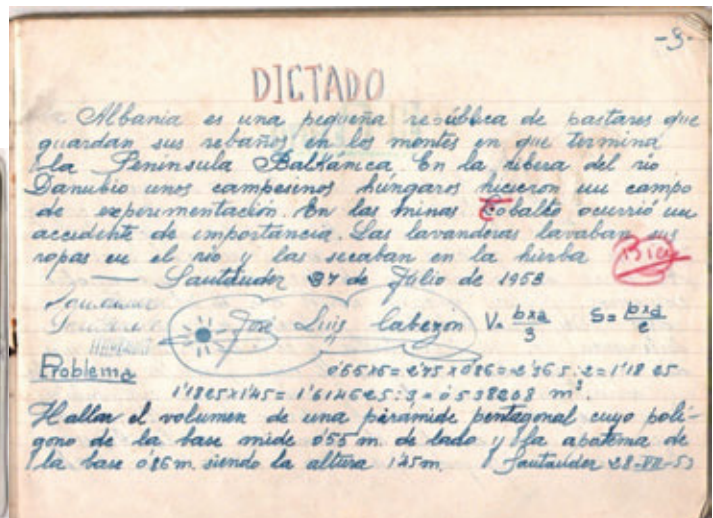 -3-
DICTADO
Albania es una pequeña república de pastares que
guardan sus rebaños en los montes en que termina
la Península Balkánica En la ribera del rio
Danubio unos campesinos húngaros hicieron un campo
de experimentación. En las minas Cobalto ocurrió un
accidente de importancia. Las lavanderas lavaban sus
ropas en el rio y las secaban en la hierba
Bien
Santander 27 de Julio de 1953
José Luis Cabezón V= bxa/3 S= pxa/2
Problema 0'55x5=2'75x0'86=2'365:2=1'1825
1'1825x1'45=1'614625:3=0'538208 m³
Hallar el volumen de una pirámide pentagonal cuyo polí-
gono de la base mide 0'55 m. de lado y la apotema de
la base 0'86 m. siendo la altura 1'45 m. Santander 28-VII-53